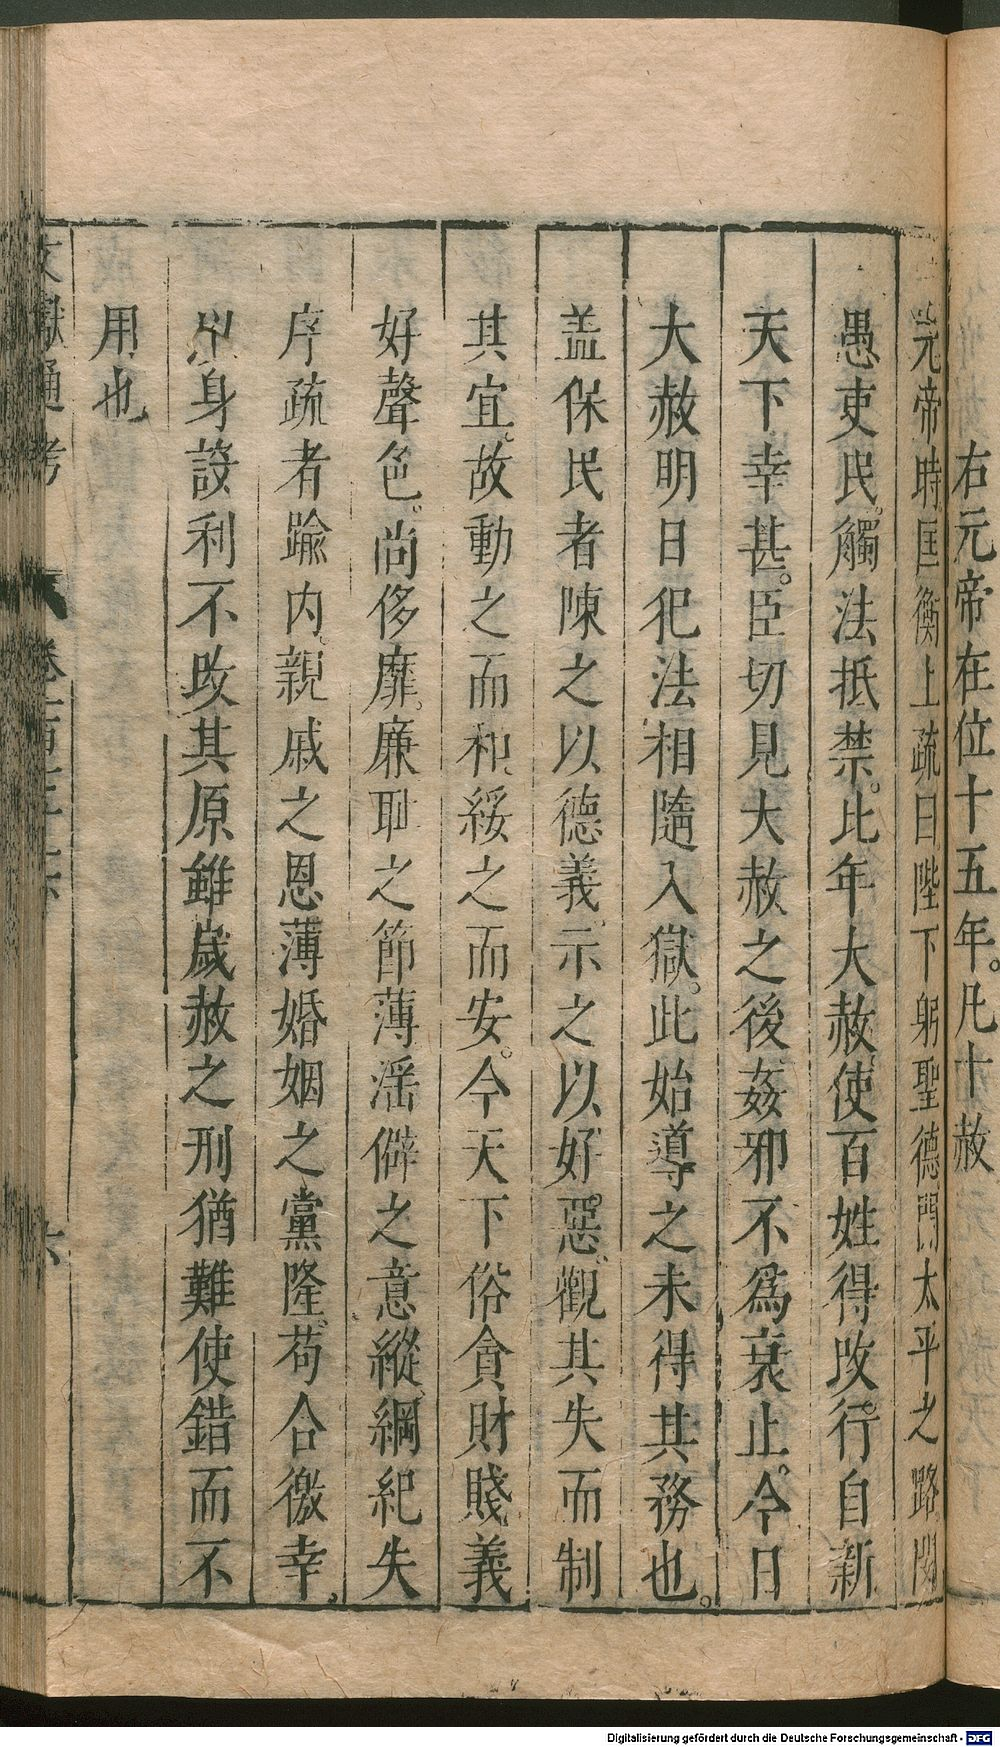 右元帝在位十五年。凡十赦
元帝時匡衡上疏曰陛下躬聖德開太平之路閔
愚吏民觸法抵禁。比年大赦使百姓得改行自新
天下幸甚。臣切見大赦之後姦邪不爲衰止。今日
大赦明日犯法相隨入獄。此始導之未得其務也。
盖保民者陳之以德義、示之以好惡、觀其失而制
其宜。故動之而和、綏之而安。今天下俗貪財賤義
好聲色。尚侈靡。廉耻之節薄淫僻之意縱、綱紀失
序疏者踰内、親戚之恩薄婚姻之黨隆。苟合徼幸、
以身設利不改其原雖歲赦之刑猶難使錯而不
用也
文獻通考
卷一百七十一
六
Digitalisierung gefördert durch die Deutsche Forschungsgemeinschaft - DFG